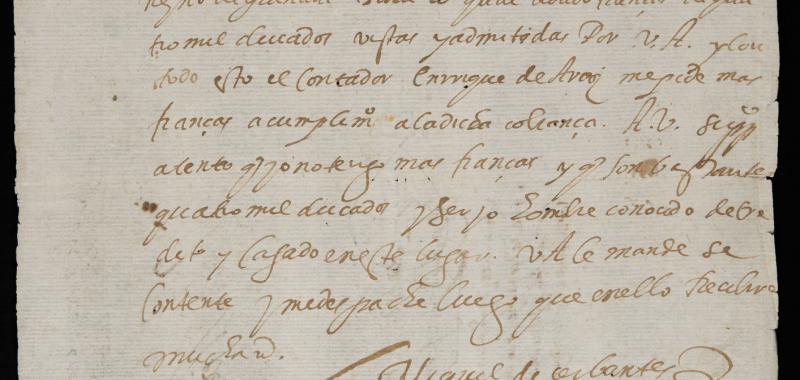 Reyno de granada para lo qual tengo dadas fianças de qua
tro mil ducados vistas y admitidas Por V. A. y con
todo esto el Contador Enrrique de Araiz me pide mas
fianças a cumplimº a la dicha cobrança. A.V. Suppco
atento q̄ yo no tengo mas fianças y q̄ son bastante
quatro mil ducados y ser yo hombre conocido de cre
dito y Casado en este lugar. VA le mande se
Contente y me despache luego que en ello Recibire
mucha md.
Miguel de cerbantes